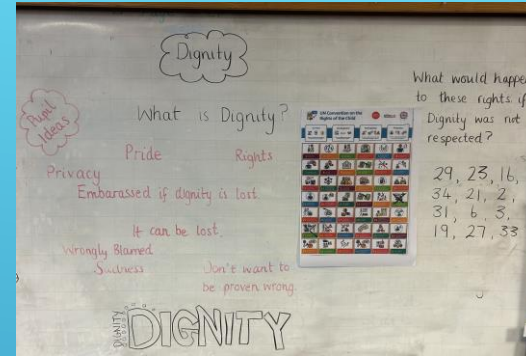 Dignity
What is Dignity?
Pupil
Ideas
Pride
Rights
Privacy
Embarassed if dignity is lost
It can be lost.
Wrongly Blamed
Sadness
Don't want to
be proven wrong.
DIGNITY
DIGNITY
UN Convention on the
Rights of the Child
What would happe
to these rights if
Dignity was not
respected?
29, 23, 16,
34, 21, 2,
31, 6, 3,
19, 27, 33